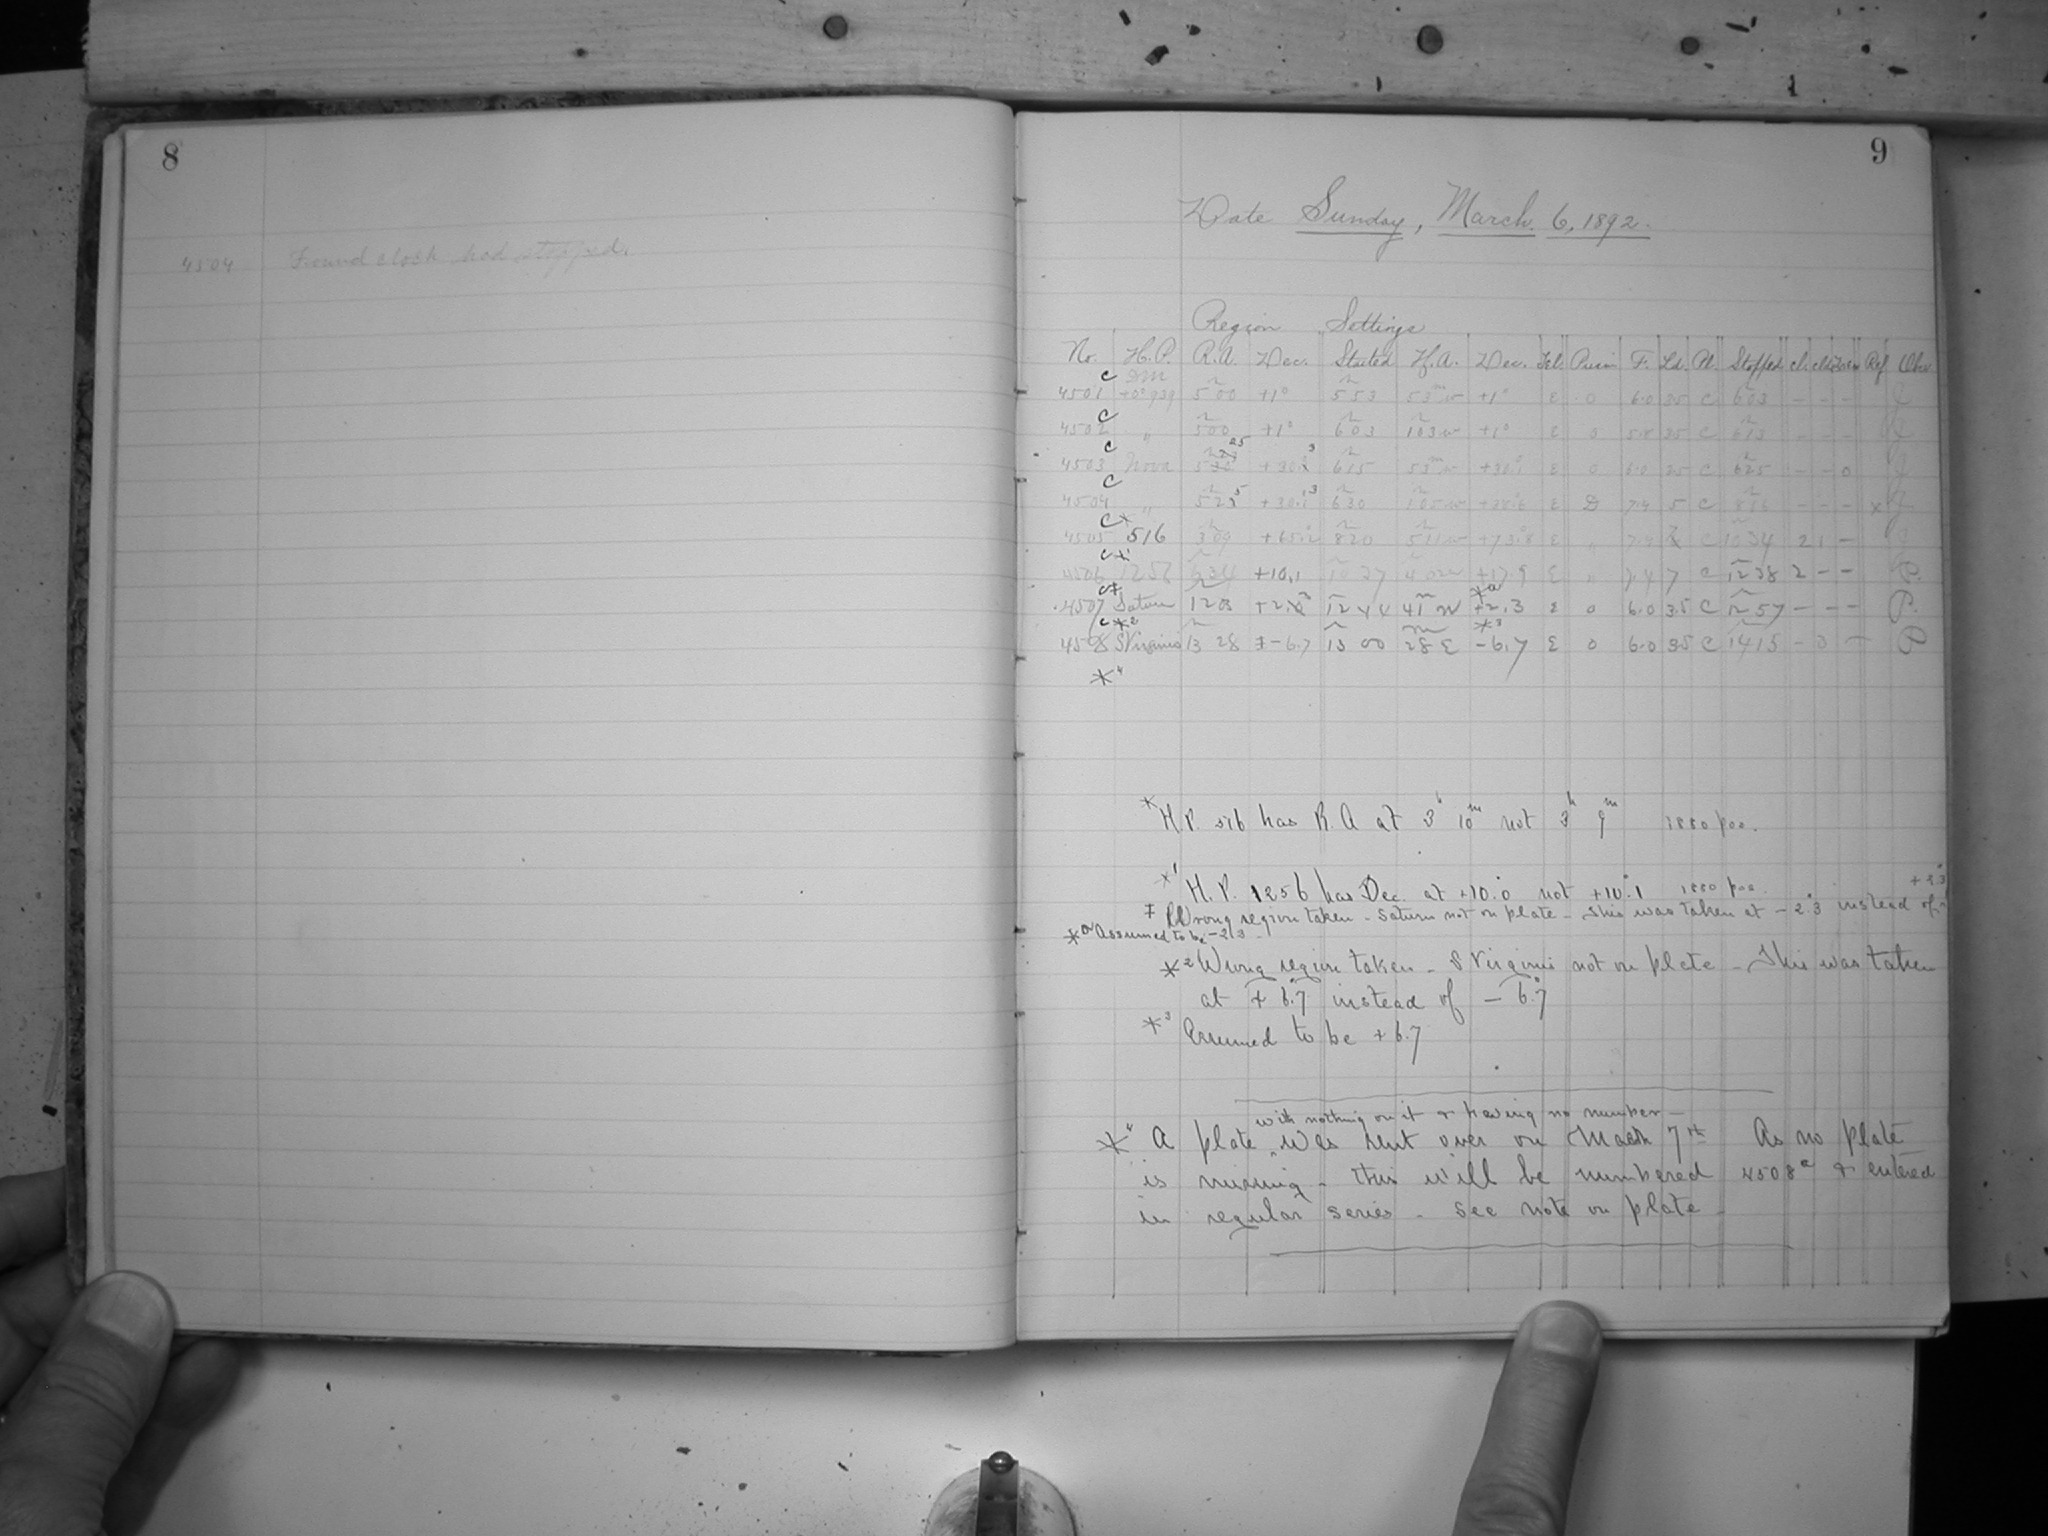 8
4504 Found clock had stopped.
9
Date Sunday, March 6, 1892.
Region Settings
No. H.P. R.A. Dec. Started H.A. Dec. Tel. Prism F. Ld. Pl. Stopped Cl. Ref. Obs.
C DM
4501 +0°939 5 00 +1° 5 53 53 w +1° E 0 6.0 35 C 6 03 - - -
C
4502 " 5 00 +1° 6 03 1 03 w +1° E 0 35 C 6 13 - - -
C
4503 Nova 6 15 53 w E 0 6.0 35 C 6 25 - - 0
C
4504 " 6 30 1 05 w E 7.4 5 C - - - x
C *
4505 516 3 09 8 20 5 11 w +73.8 E " C 10 34 2 1 -
C *1
4506 1256 6 34 +10.1 10 37 4 02 w E " 7.4 7 C 12 38 2 - - P.
C ‡ *a
4507 Saturn 12 44 41 w +2.3 E 0 6.0 35 C 12 57 - - - P.
C *2 *3
4508 S Virginis 13 28 -6.7 13 00 28 E -6.7 E 0 6.0 35 C 14 15 - 3 - P
*4
* H.P. 516 has R.A at 3h 10m not 3h 9m 1880 pos.
*1 H.P. 1256 has Dec. at +10°.0 not +10°.1 1880 pos.
+2.3
‡ Wrong region taken - Saturn not on plate - This was taken at -2°.3 instead of
*a Assumed to be -2.3
*2 Wrong region taken - S Virginis not on plate - This was taken
at + 6°.7 instead of - 6°.7
*3 Assumed to be +6.7
with nothing on it & having no number -
*4 A plate was sent over on March 7th As no plate
is missing - this will be numbered 4508a & entered
in regular series - See note on plate -